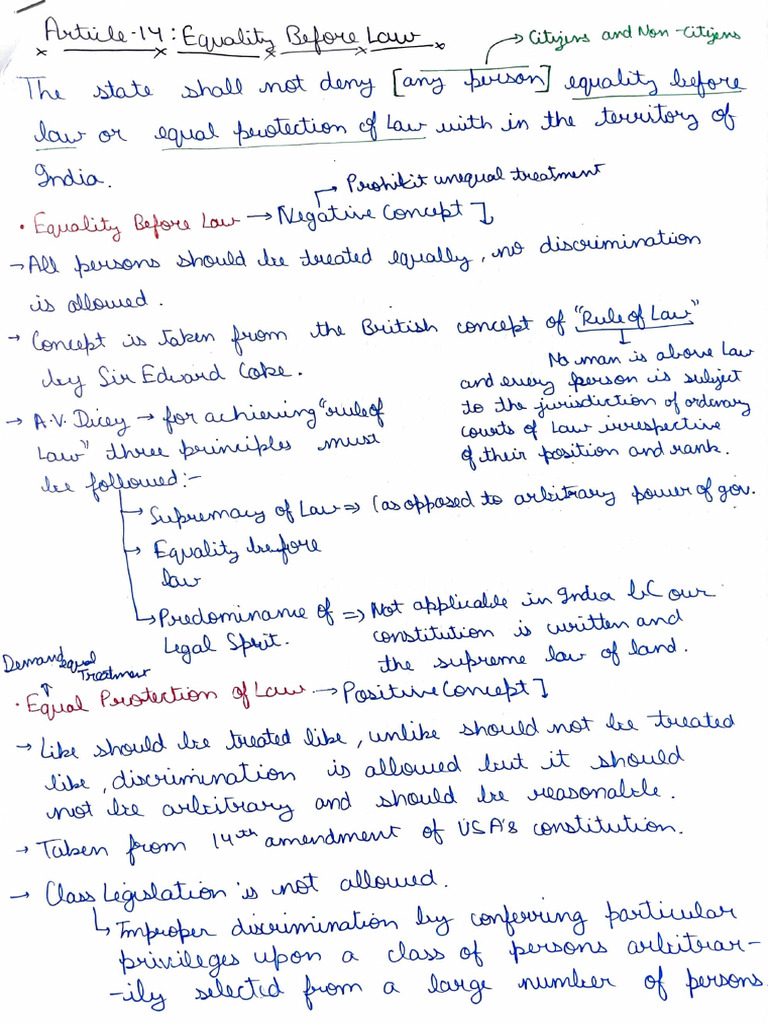 Article-14: Equality Before Law
→ Citizens and Non-Citizens
The state shall not deny [any person] equality before
law or equal protection of Law with in the territory of
India.
→ Prohibit unequal treatment
• Equality Before Law → Negative Concept]
→ All persons should be treated equally, no discrimination
is allowed.
→ Concept is taken from the British concept of "Rule of Law"
by Sir Edward Coke.
No man is above Law
and every person is subject
to the jurisdiction of ordinary
courts of Law irrespective
of their position and rank.
→ A.V. Dicey → for achieving "rule of
Law" three principles must
be followed:-
→ Supremacy of Law ⇒ (as opposed to arbitrary power of gov.
→ Equality before
law
→ Predominance of ⇒ Not applicable in India bC our
Legal Sprit. constitution is written and
the supreme law of land.
Demand equal
Treatment
• Equal Protection of Law → Positive Concept]
→ Like should be treated like, unlike should not be treated
like, discrimination is allowed but it should
not be arbitrary and should be reasonable.
→ Taken from 14th amendment of USA's constitution.
→ Class Legislation is not allowed.
↳ Improper discrimination by conferring particular
privileges upon a class of persons arbitrar-
-ily selected from a large number of persons.